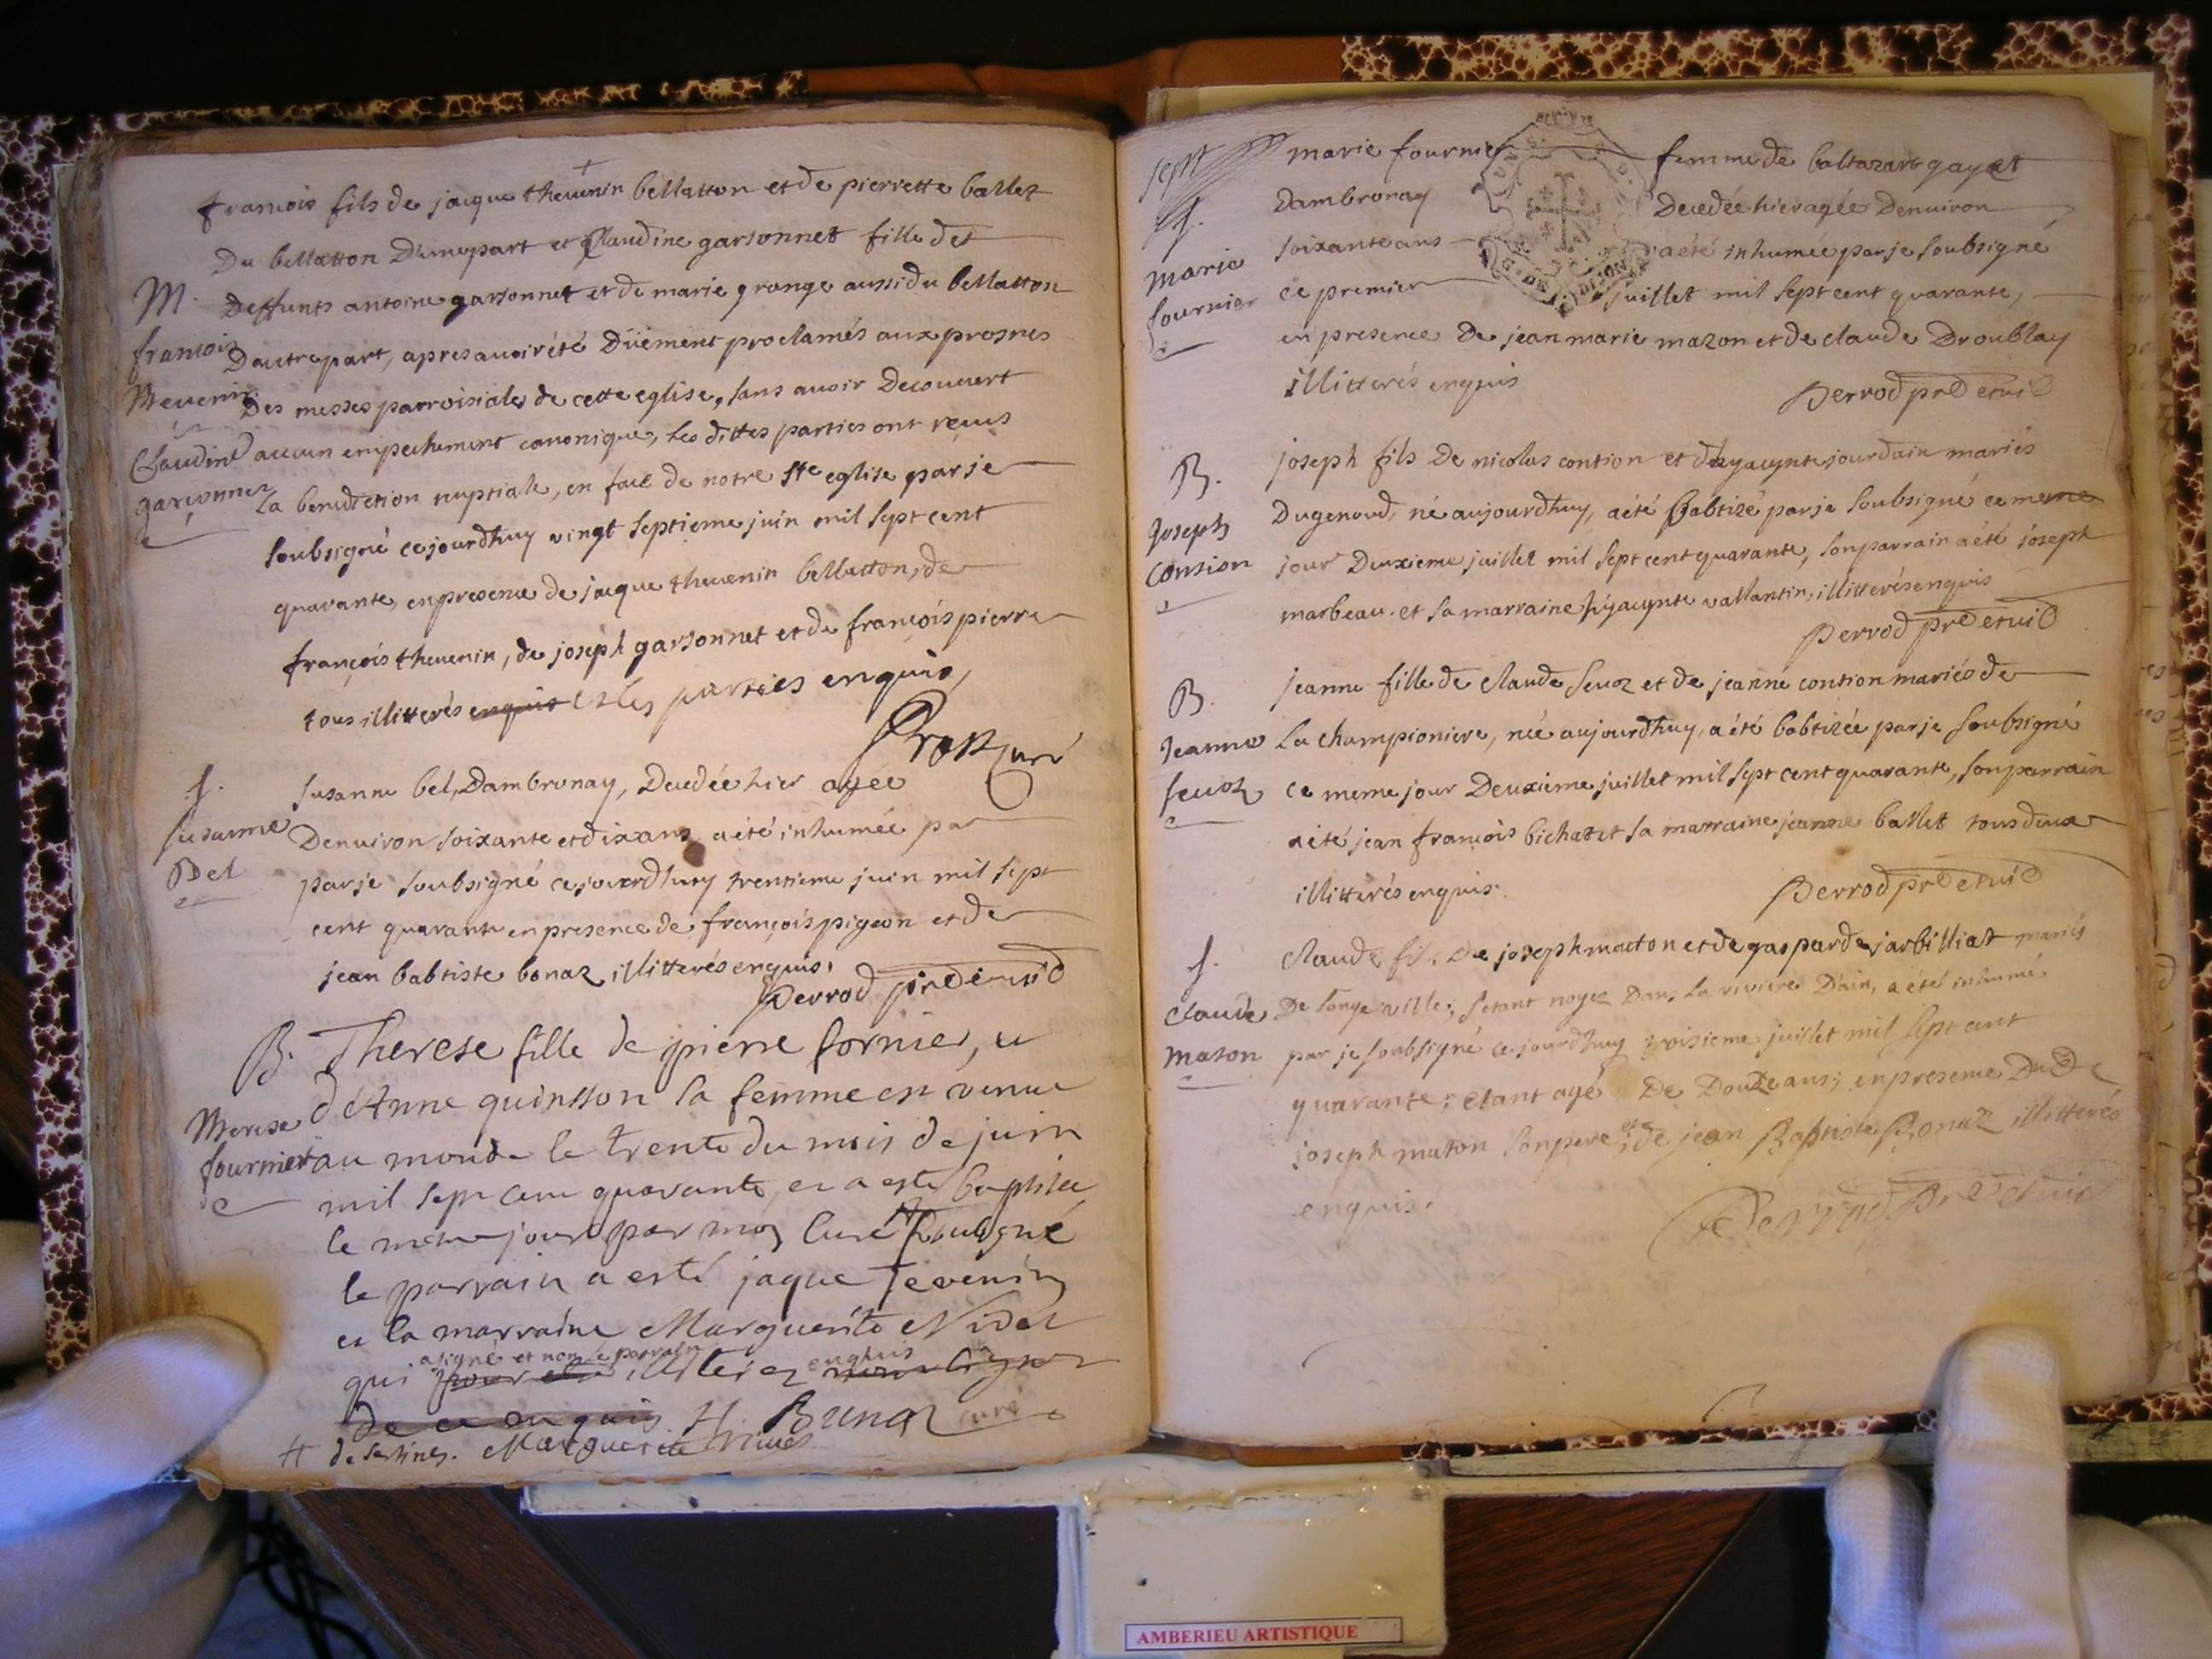 francois fils de jacque thevenin bellatton et de pierrette ballet
Du bellatton D'unepart et Claudine garsonnet fille det
M.
Deffunts antoine garsonnet et de marie grange aussi du bellatton
francois
Dautre part, apres avoir été Düement proclamés aux prosnes
thevenin
Des messes parroisiales de cette eglise, sans avoir Decouvert
Claudine
aucun empechement canonique, les dittes parties ont reçus
garçonnet
La benediction nuptiale, en face de notre Ste eglise par je
soubsigné cejourdhuy vingt septieme juin mil sept cent
quarante, en presence de jacque thevenin bellatton, de
françois thevenin, de joseph garsonnet et de françois pierre
tous illitterés enquis et les parties enquis,
curé
f.
susanne bel, Dambronay, Decedée hier agée
susanne
Denviron soixante et dix ans a été inhumée par
Bel
par je soubsigné ce jourdhuy trentieme juin mil sept
cent quarante en presence de françois pigeon et de
jean babtiste bonaz illitterés enquis.
Perrod pre et vic
B.
Therese fille de pierre fornier, et
d'Anne quinsson sa femme est venue
therese
au monde le trente du mois de juin
fournier
mil sept cent quarante, et a esté baptisée
le meme jour par moy Curé soussigné
le parrain a esté jaque Tevenin
et la marraine Marguerite Nidet
a signé et non le parrain
enquis
qui illiterez
de ce enquis H. Brunet curé
H de sestines. Marguerite
sept
marie fournier femme de baltazart gayet
f.
Dambronay Decedée hier agée Denviron
marie
soixante ans a été inhumée par je soubsigné
fournier
ce premier juillet mil sept cent quarante,
G. DE DIJON
en presence De jean marie mazon et de claude Droublay
illitterés enquis
Perrod pre et vic
B.
joseph fils De nicolas contion et dhyacynte jourdain mariés
Joseph
Dugenoud, né aujourdhuy, a été Babtizé par je soubsigné ce meme
Consion
jour Deuxieme juillet mil sept cent quarante, son parrain a été joseph
marbeau et sa marraine hyacynte vallantin, illitterés enquis
Perrod pre et vic
B.
jeanne fille de claude sevoz et de jeanne contion mariés de
Jeanne
La championiere, née aujourdhuy, a été babtizée par je soubsigné
sevoz
ce meme jour Deuxieme juillet mil sept cent quarante, son parrain
a été jean françois bichat et sa marraine jeanne ballet tous deux
illitterés enquis.
Perrod pre et vic
f.
Claude fils De joseph matton et de gasparde jarbilliat mariés
Claude
De longeville; setant noyez Dans la riviere D'ain, a été inhumé
maton
par je soubsigné ce jourdhuy troisieme juillet mil sept cent
quarante; etant agé De Douze ans; en presence De
joseph maton son pere et de jean Baptiste Bonaz illitterés
enquis.
Perrod Pre et vic
AMBERIEU ARTISTIQUE